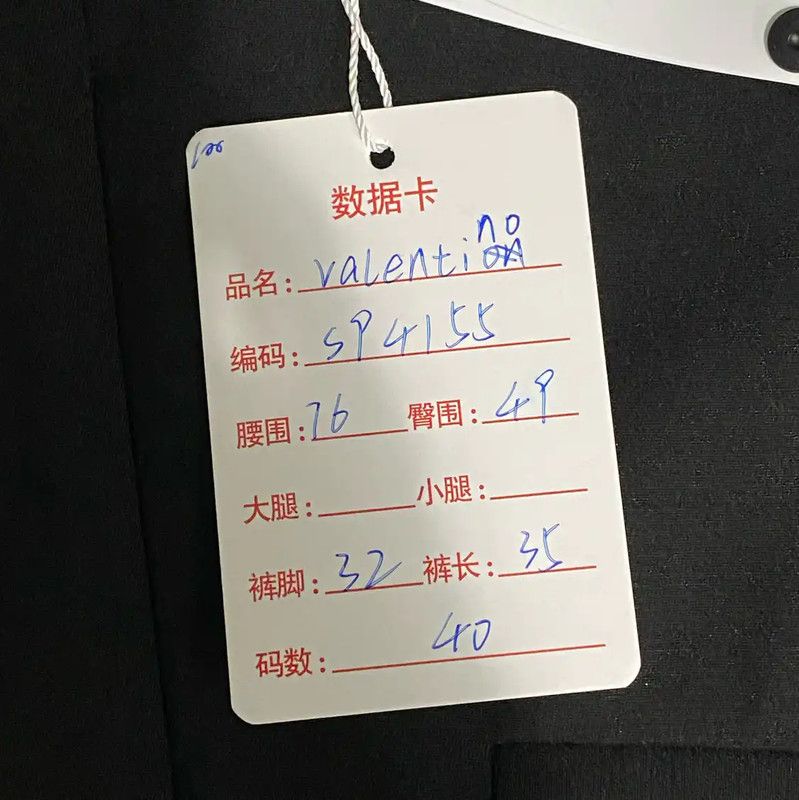 数据卡
品名: valentino
编码: SP4155
腰围: 76 臀围: 49
大腿: 小腿:
裤脚: 32 裤长: 35
码数: 40